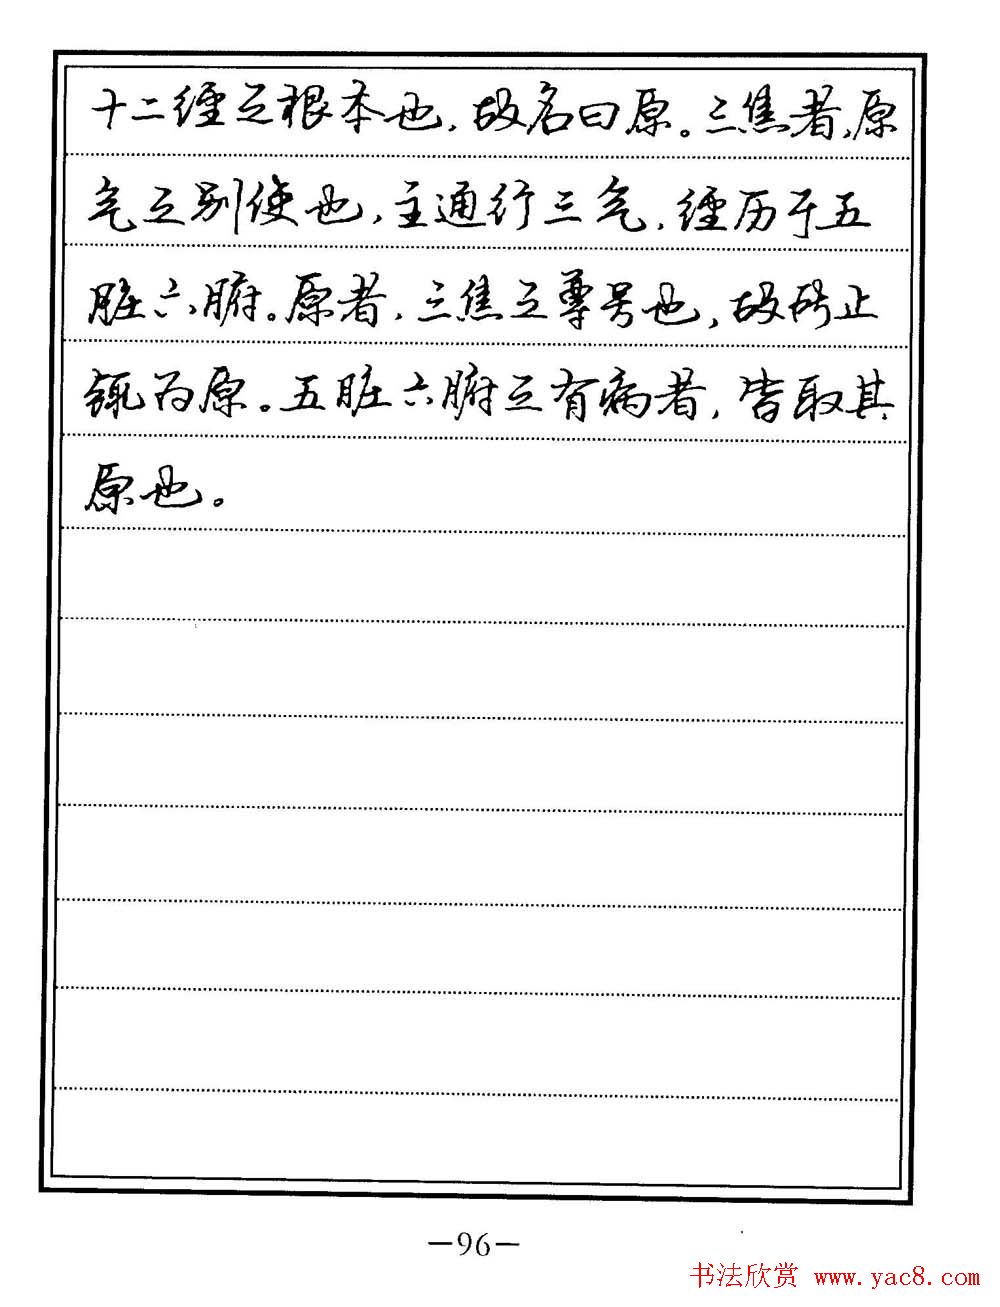 十二经之根本也，故名曰原。三焦者，原
气之别使也，主通行三气，经历于五
脏六腑。原者，三焦之尊号也，故所止
辄为原。五脏六腑之有病者，皆取其
原也。
—96—
书法欣赏 www.yac8.com